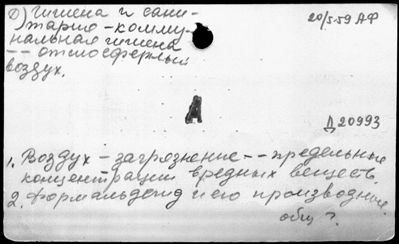 0) Гигиена и сани-
тарно-комму-
нальная гигиена
-- атмосферный
воздух.
20/5-59 АФ
А
Д 20993
1. Воздух - загрязнение -- предельные
концентрации вредных веществ
2. Формальдегид и его производные.
общ ?